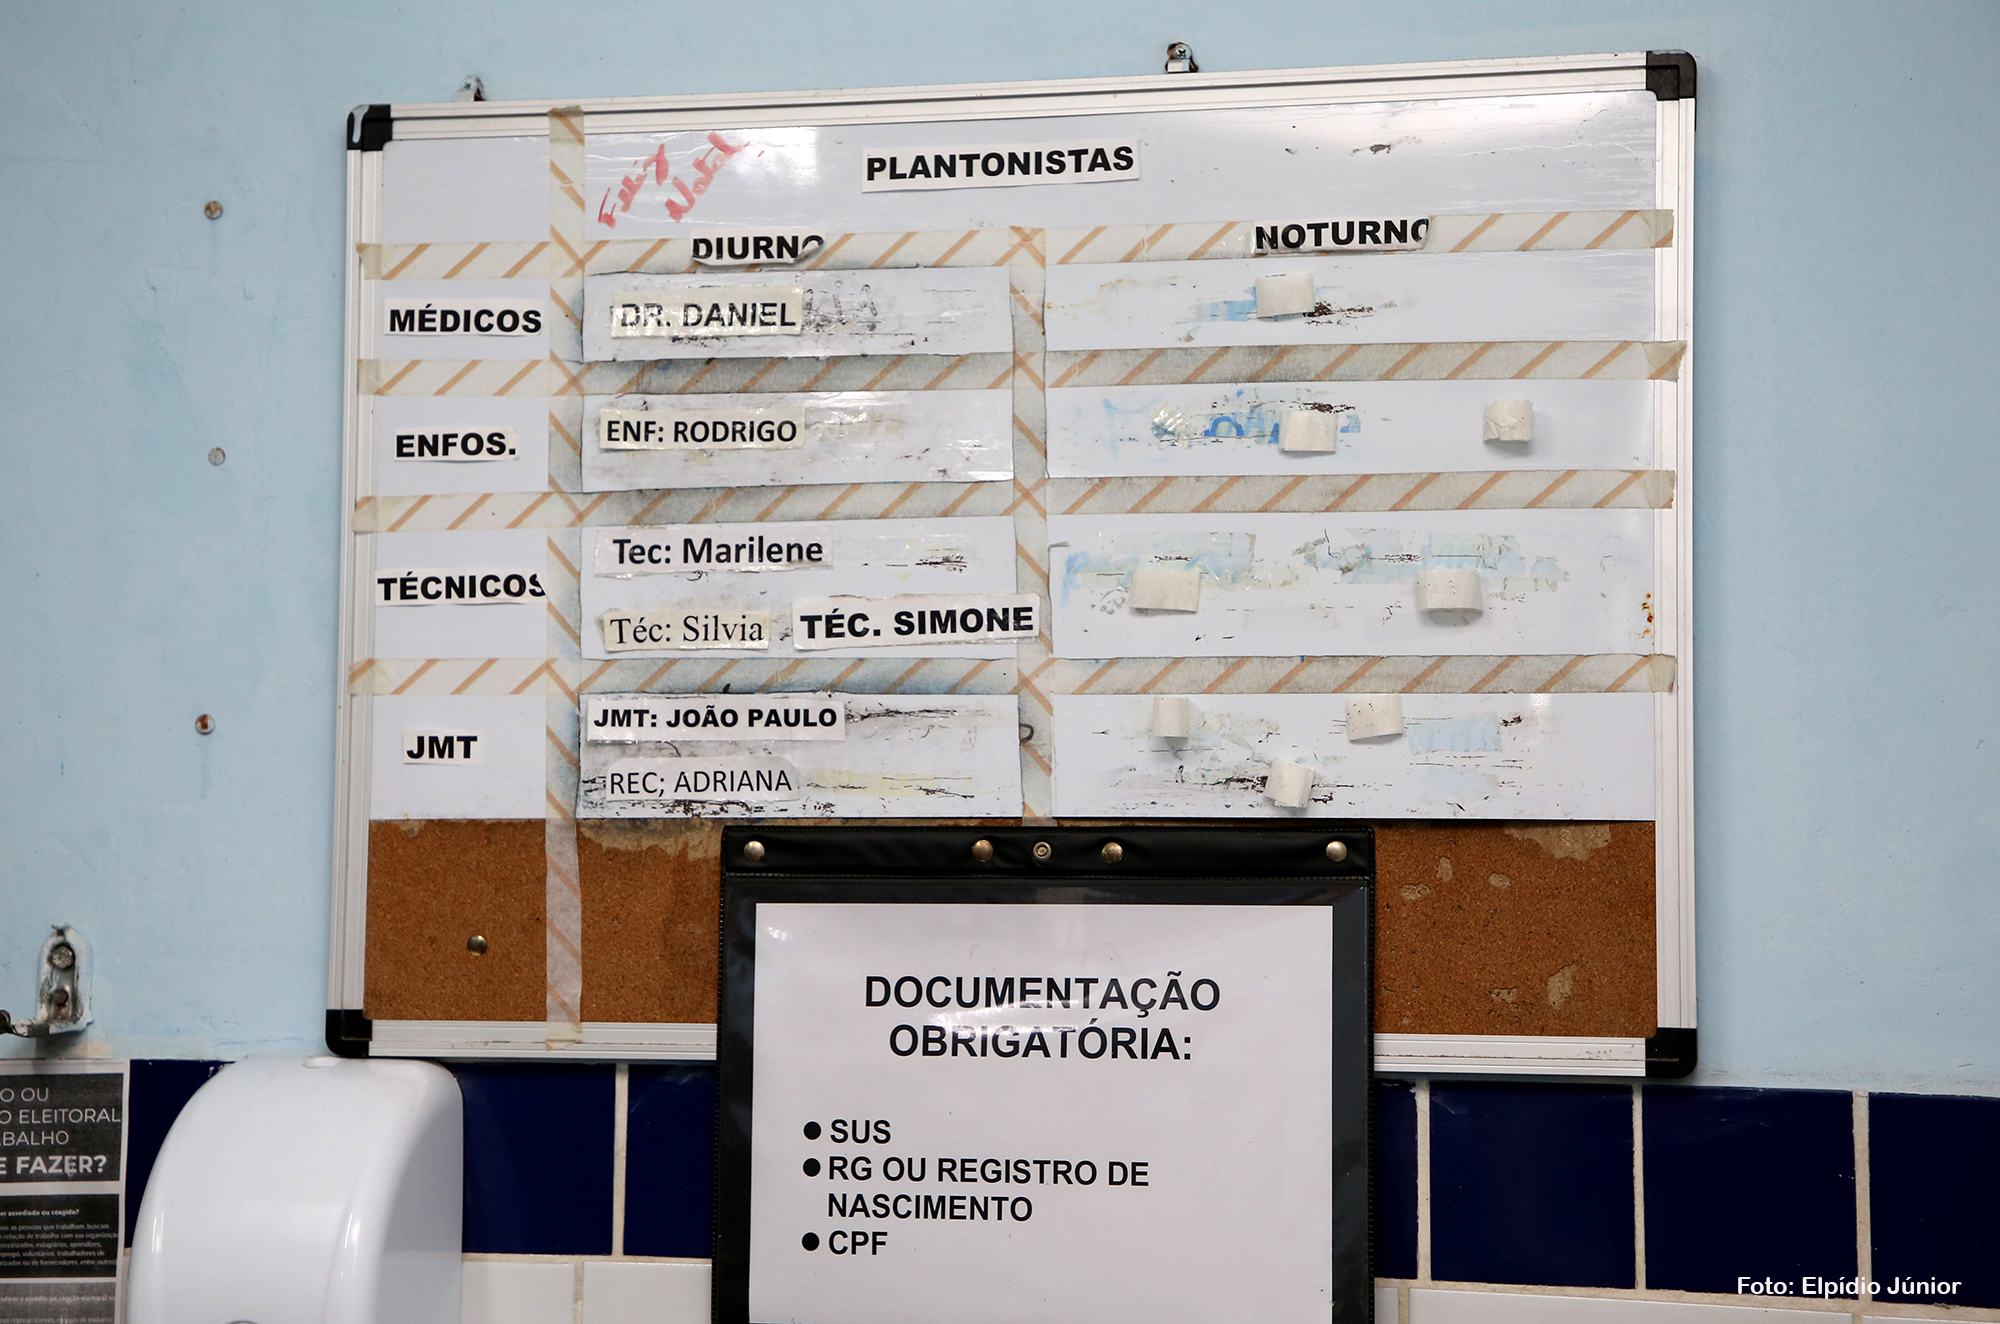 Feliz
Natal
PLANTONISTAS
DIURNO
NOTURNO
MÉDICOS
DR. DANIEL
ENFOS.
ENF: RODRIGO
TÉCNICOS
Tec: Marilene
Téc: Silvia
TÉC. SIMONE
JMT
JMT: JOÃO PAULO
REC; ADRIANA
DOCUMENTAÇÃO
OBRIGATÓRIA:
● SUS
● RG OU REGISTRO DE
NASCIMENTO
● CPF
O OU
O ELEITORAL
BALHO
E FAZER?
er assediado ou coagido?
Foto: Elpídio Júnior